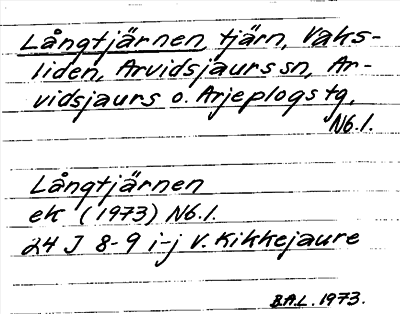 Långtjärnen, tjärn, Vaks-
liden, Arvidsjaurs sn, Ar-
vidsjaurs o. Arjeplogs tg.
Nb.l.
Långtjärnen
ek (1973) Nb.l.
24 J 8-9 i-j V. Kikkejaure
B.A.L. 1973.